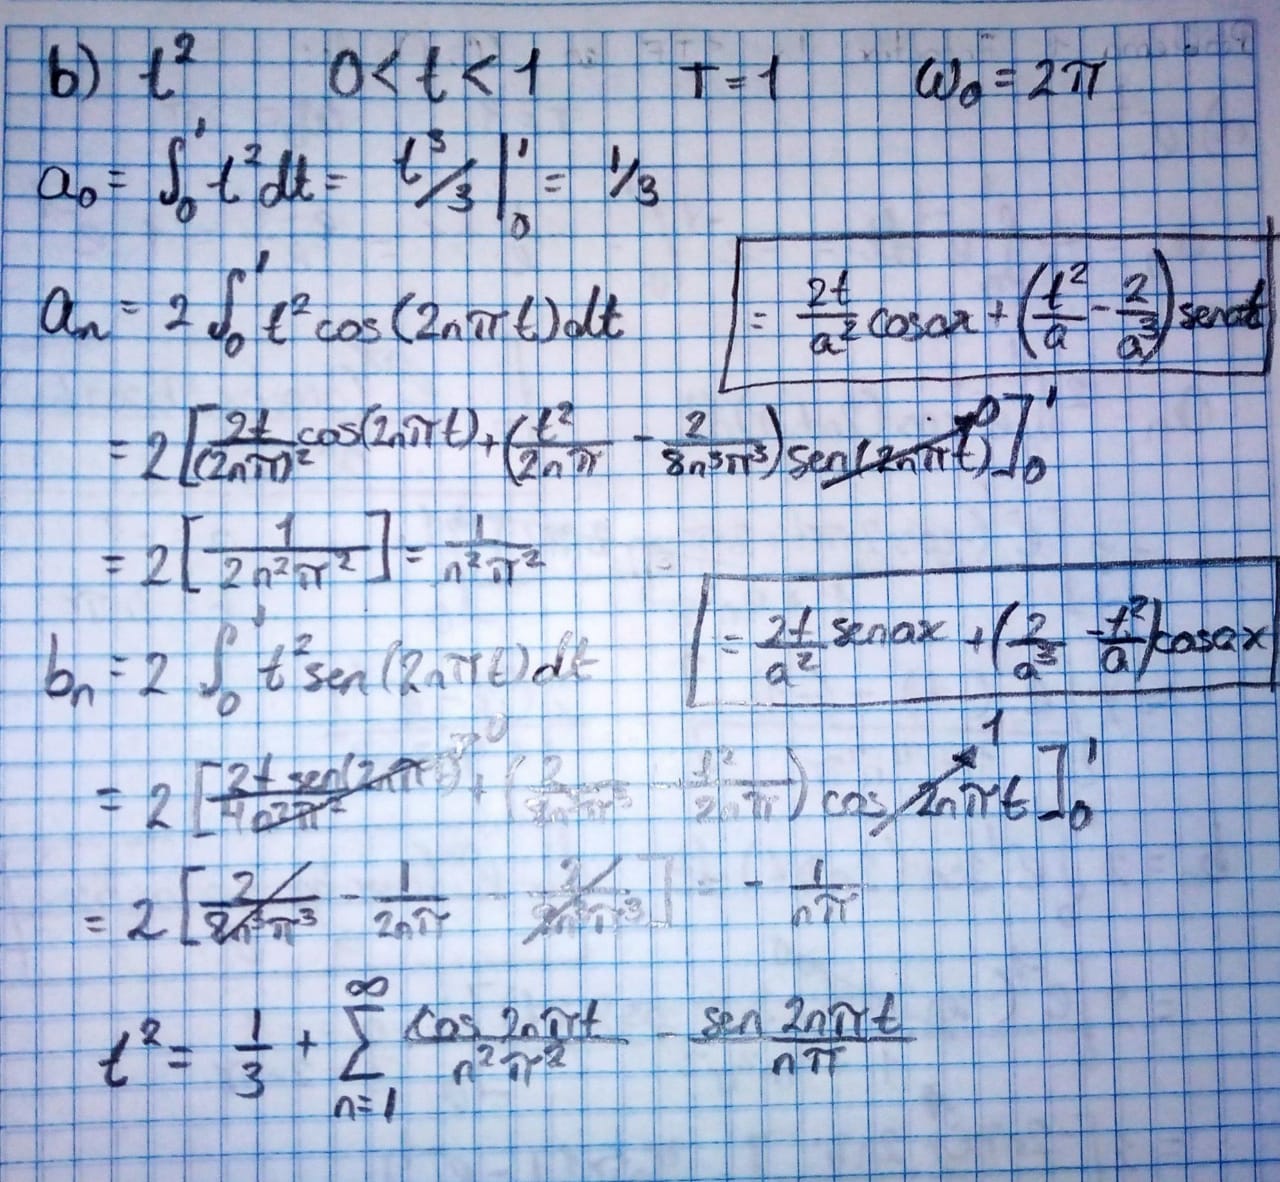 b) t² 0 < t < 1 T = 1 ω₀ = 2π
a₀ = ∫₀¹ t² dt = t³/3 |₀¹ = 1/3
aₙ = 2 ∫₀¹ t² cos(2nπt) dt
= 2t/a² cosax + (t²/a - 2/a³) senat
= 2 [2t/(2nπ)² cos(2nπt) + (t²/2nπ - 2/8n³π³) sen(2nπt) 0]₀¹
= 2 [1/2n²π²] = 1/n²π²
bₙ = 2 ∫₀¹ t² sen(2nπt) dt
= 2t/a² senax + (2/a³ - t²/a) cosax
= 2 [2t sen(2nπt)/4n²π² 0 + (2/8n³π³ - t²/2nπ) cos 2nπt 1]₀¹
= 2 [2/8n³π³ - 1/2nπ - 2/8n³π³] = - 1/nπ
t² = 1/3 + ∑ₙ₌₁^∞ cos 2nπt/n²π² - sen 2nπt/nπ